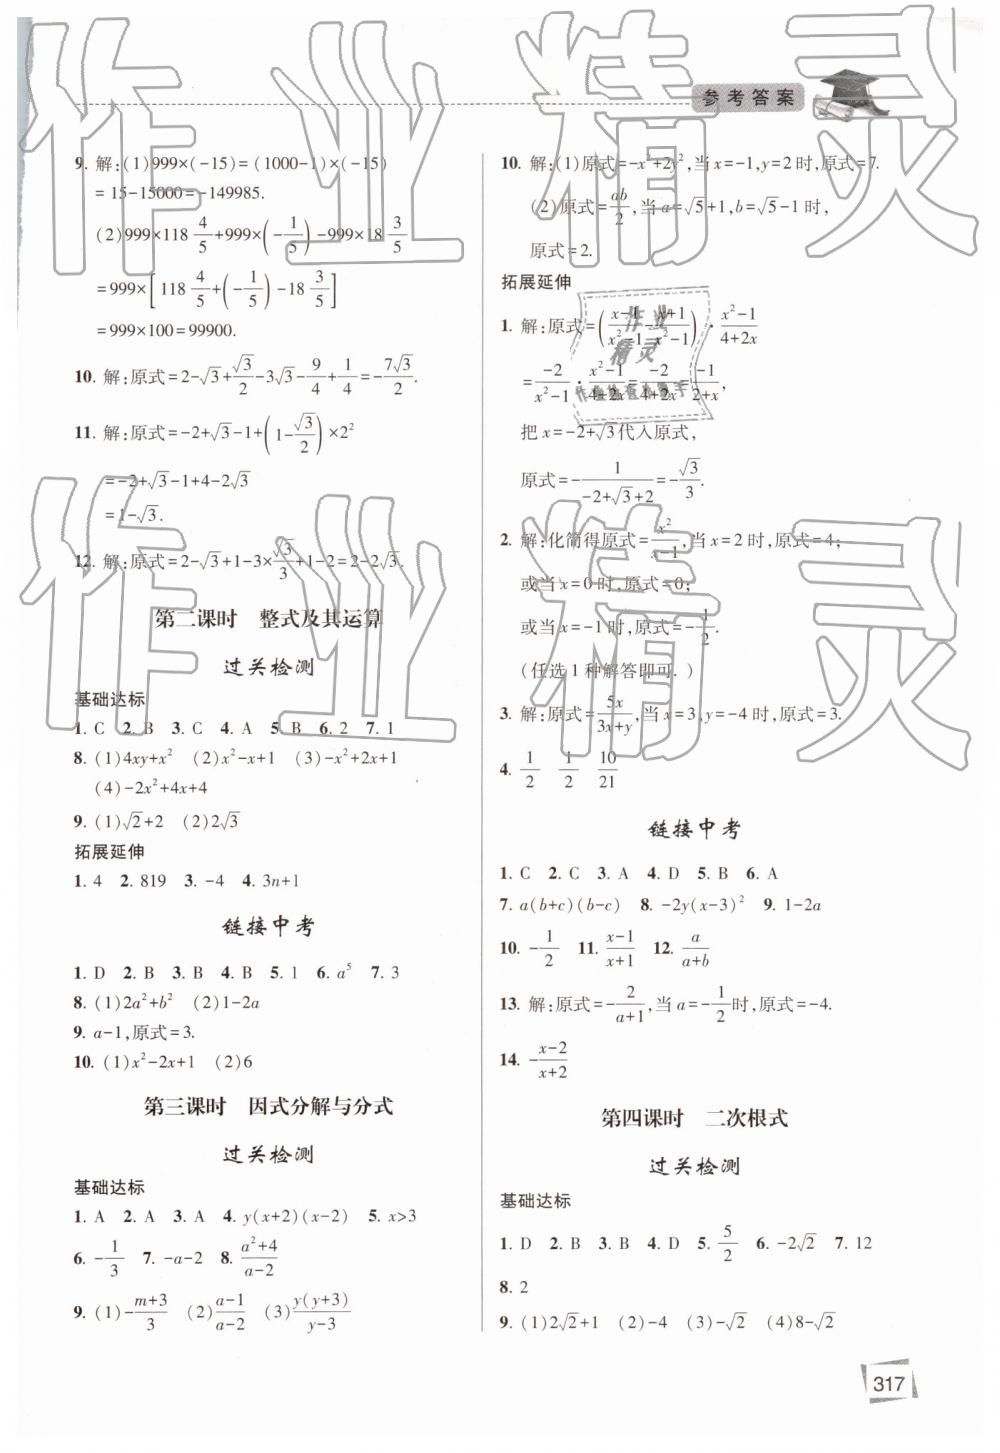 参考答案
9. 解:(1)999×(-15)=(1000-1)×(-15)
=15-15000=-149985.
(2)999×118 4/5+999×(-1/5)-999×18 3/5
=999×[118 4/5+(-1/5)-18 3/5]
=999×100=99900.
10. 解:原式=2-√3+√3/2-3√3-9/4+1/4=-7√3/2.
11. 解:原式=-2+√3-1+(1-√3/2)×2²
=-2+√3-1+4-2√3
=1-√3.
12. 解:原式=2-√3+1-3×√3/3+1-2=2-2√3.
第二课时 整式及其运算
过关检测
基础达标
1. C 2. B 3. C 4. A 5. B 6. 2 7. 1
8. (1)4xy+x² (2)x²-x+1 (3)-x²+2x+1
(4)-2x²+4x+4
9. (1)√2+2 (2)2√3
拓展延伸
1. 4 2. 819 3. -4 4. 3n+1
链接中考
1. D 2. B 3. B 4. B 5. 1 6. a⁵ 7. 3
8. (1)2a²+b² (2)1-2a
9. a-1,原式=3.
10. (1)x²-2x+1 (2)6
第三课时 因式分解与分式
过关检测
基础达标
1. A 2. A 3. A 4. y(x+2)(x-2) 5. x>3
6. -1/3 7. -a-2 8. (a²+4)/(a-2)
9. (1)-(m+3)/3 (2)(a-1)/(a-2) (3)y(y+3)/(y-3)
10. 解:(1)原式=-x²+2y²,当x=-1,y=2时,原式=7.
(2)原式=ab/2,当a=√5+1,b=√5-1时,
原式=2.
拓展延伸
1. 解:原式=((x-1)/(x²-1)-(x+1)/(x²-1))·(x²-1)/(4+2x)
=-2/(x²-1)·(x²-1)/(4+2x)=-2/(4+2x)=-1/(2+x),
把x=-2+√3代入原式,
原式=-1/(-2+√3+2)=-√3/3.
2. 解:化简得原式=x²/(x-1),当x=2时,原式=4;
或当x=0时,原式=0;
或当x=-1时,原式=-1/2.
(任选1种解答即可.)
3. 解:原式=5x/(3x+y),当x=3,y=-4时,原式=3.
4. 1/2 1/2 10/21
链接中考
1. C 2. C 3. A 4. D 5. B 6. A
7. a(b+c)(b-c) 8. -2y(x-3)² 9. 1-2a
10. -1/2 11. (x-1)/(x+1) 12. a/(a+b)
13. 解:原式=-2/(a+1),当a=-1/2时,原式=-4.
14. -(x-2)/(x+2)
第四课时 二次根式
过关检测
基础达标
1. D 2. B 3. B 4. D 5. 5/2 6. -2√2 7. 12
8. 2
9. (1)2√2+1 (2)-4 (3)-√2 (4)8-√2
317
作业精灵
作业精灵
作业
精灵